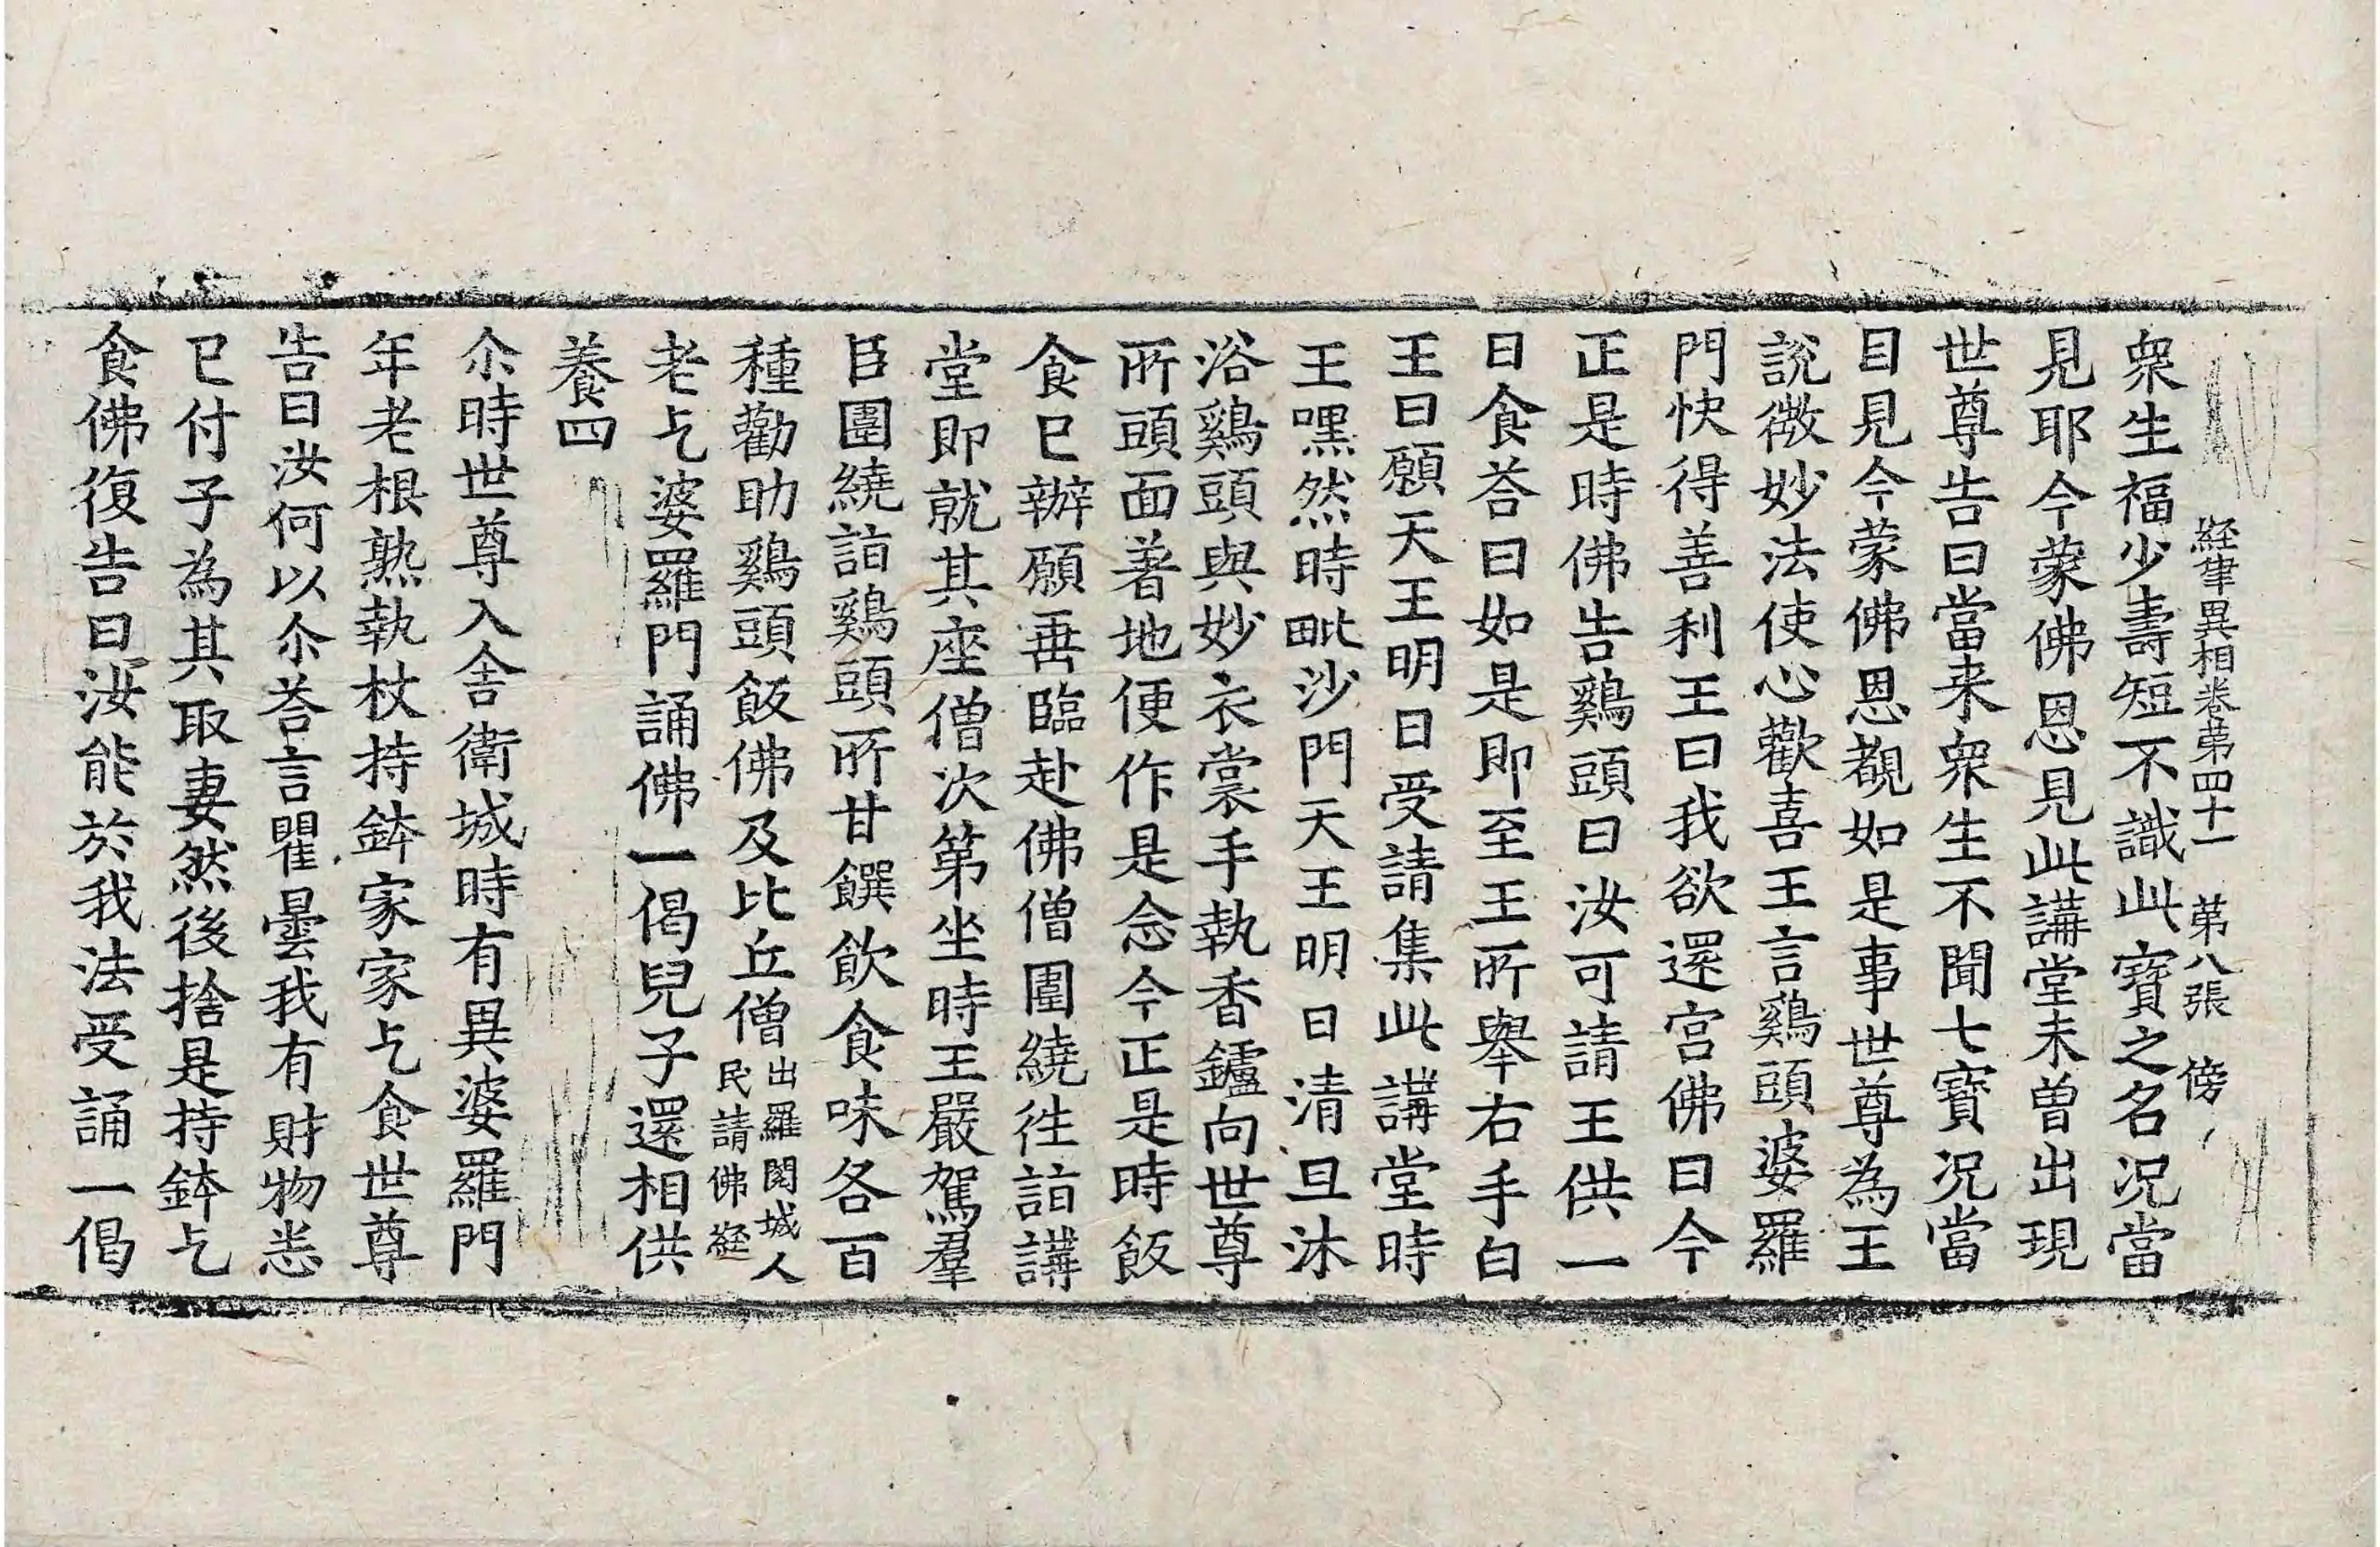 経律異相卷苐四十一　苐八張　傍
衆生福少壽短不識此寶之名况當
見耶今蒙佛恩見此講堂未曽出現
世尊告曰當来衆生不聞七寶况當
目見今蒙佛恩覩如是事世尊為王
説微妙法使心歡喜王言鷄頭婆羅
門快得善利王曰我欲還宫佛曰今
正是時佛告鷄頭曰汝可請王供一
日食荅曰如是即至王所舉右手白
王曰願天王明日受請集此講堂時
王嘿然時毗沙門天王明日清旦沐
浴鷄頭與妙衣裳手執香鑪向世尊
所頭面著地便作是念今正是時飯
食已辦願垂臨赴佛僧圍繞徃詣講
堂即就其座僧次第坐時王嚴駕羣
臣圍繞詣鷄頭所甘饌飲食味各百
種勸助鷄頭飯佛及比丘僧出羅閱城人
民請佛経
老乞婆羅門誦佛一偈兒子還相供
養四
尒時世尊入舍衛城時有異婆羅門
年老根熟執杖持鉢家家乞食世尊
告曰汝何以尒荅言瞿曇我有財物悉
已付子為其取妻然後捨是持鉢乞
食佛復告曰汝能於我法受誦一偈